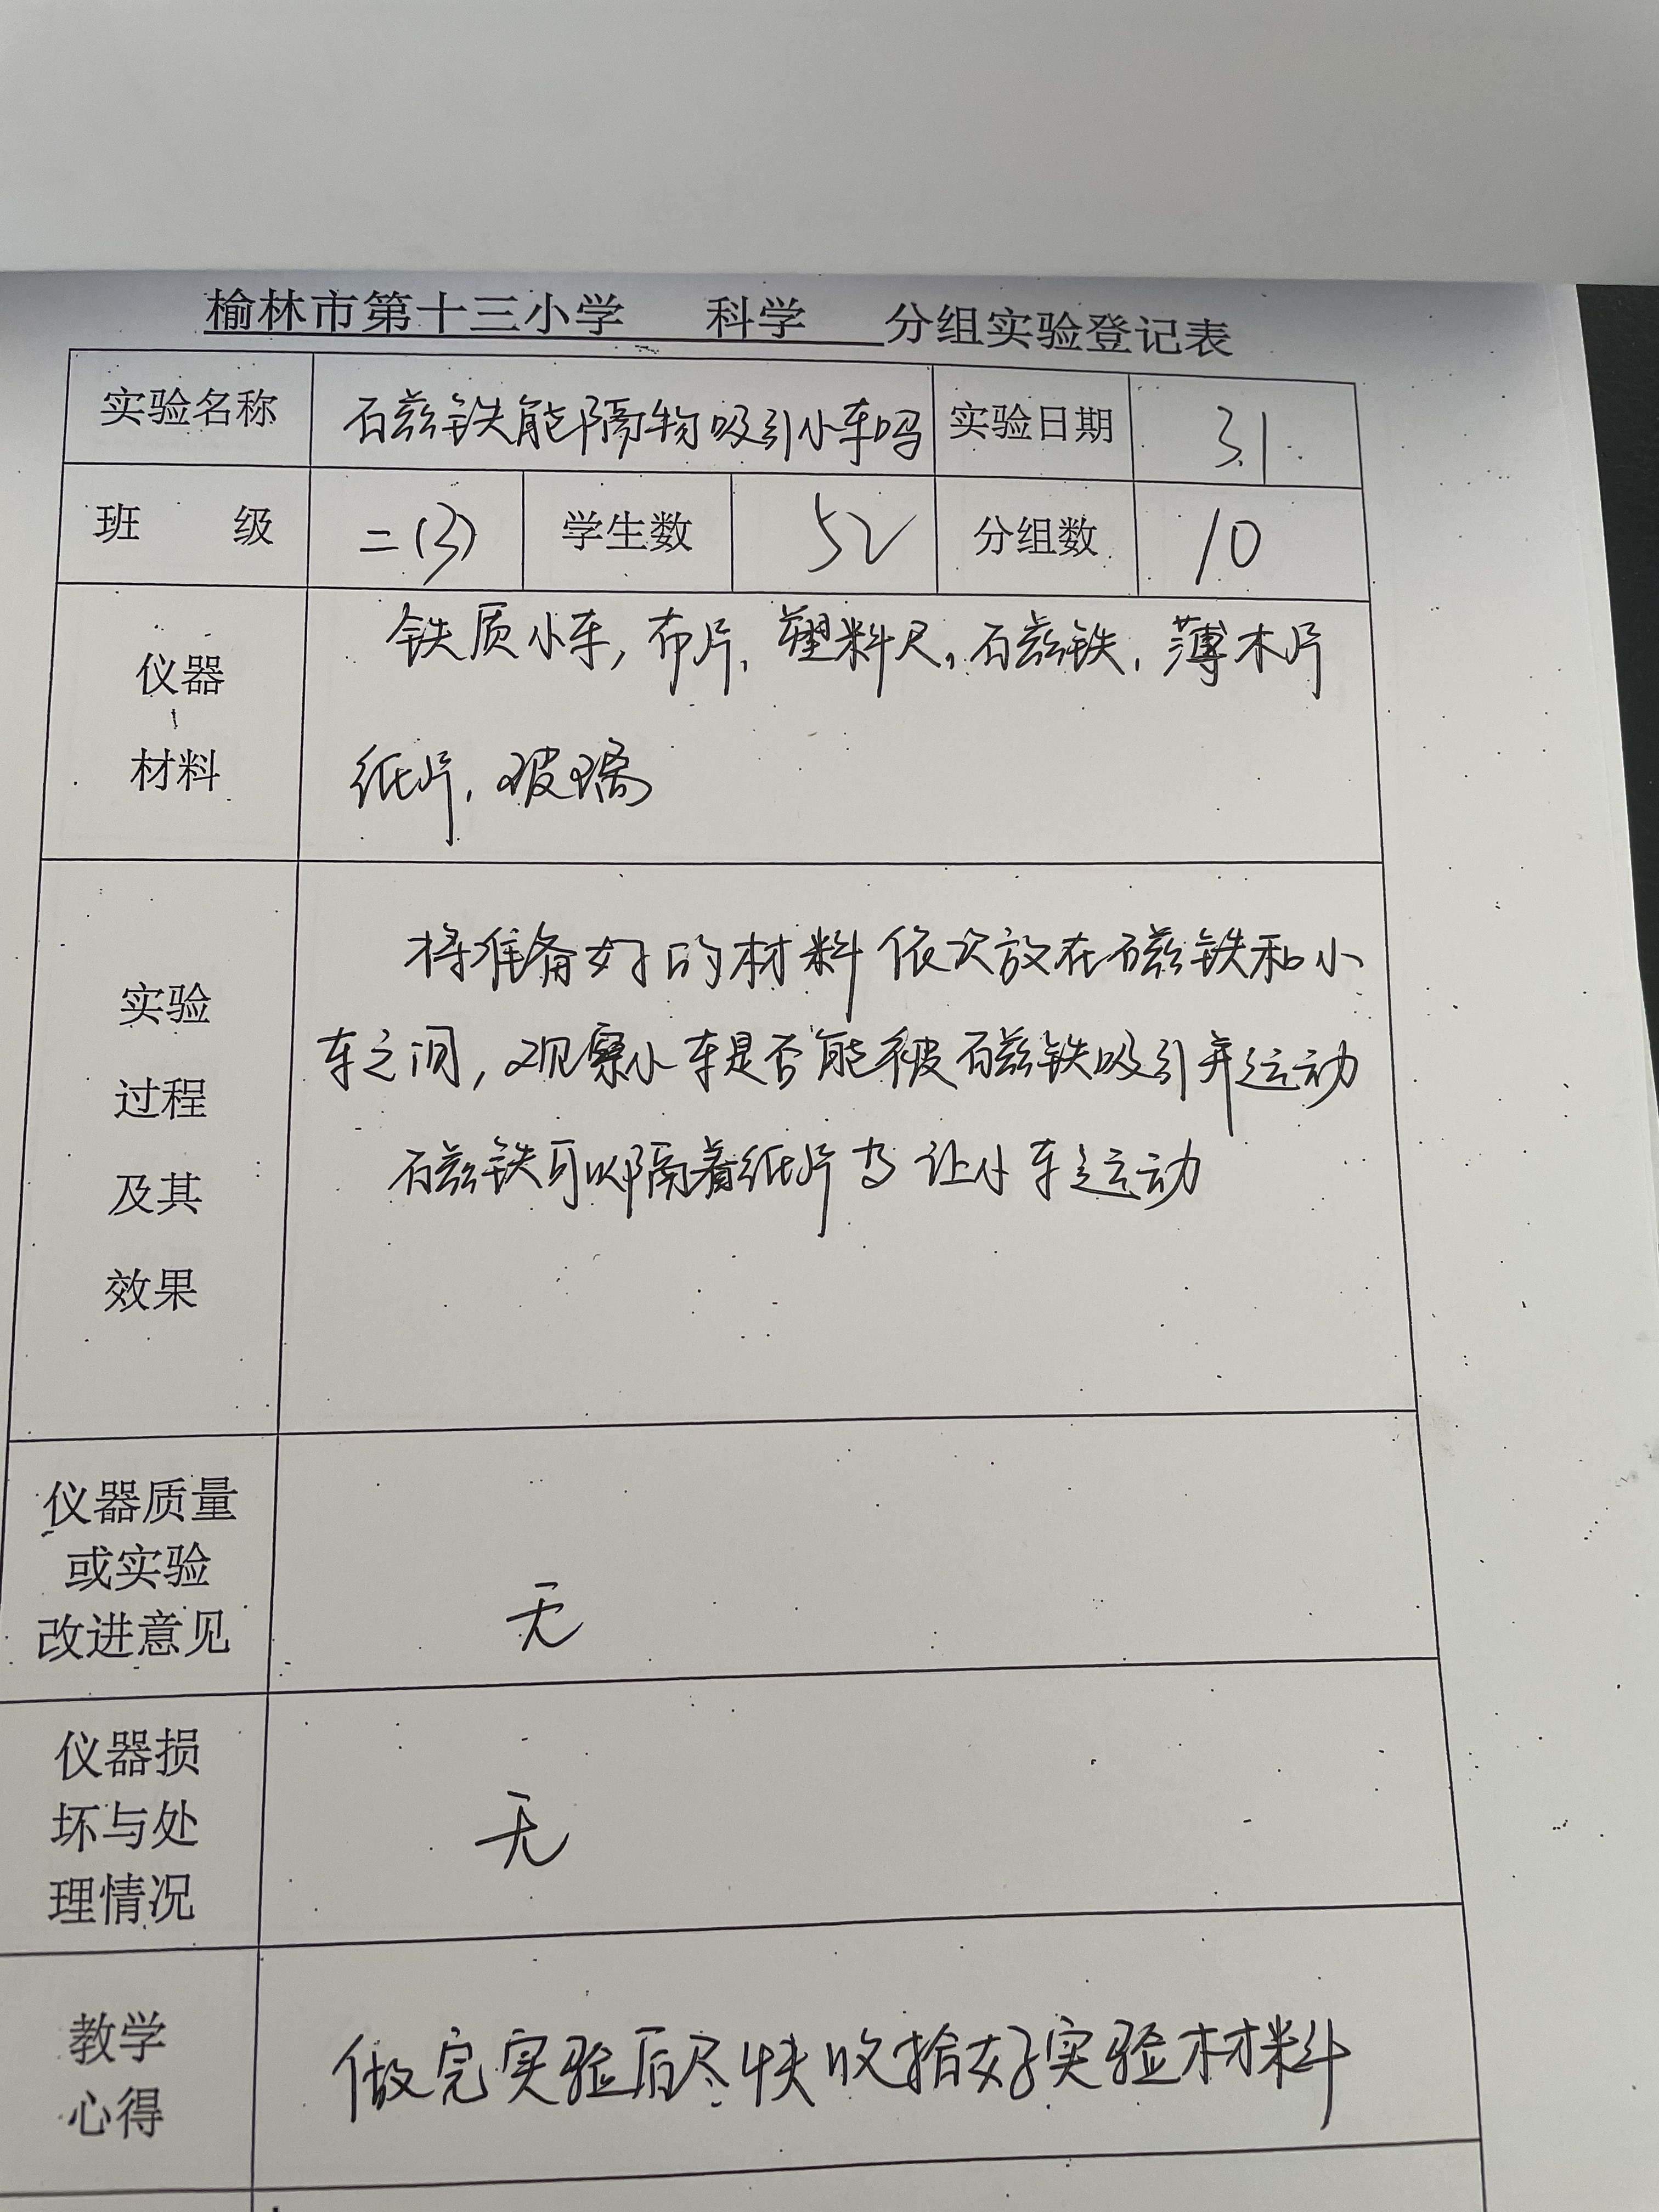 榆林市第十三小学 科学 分组实验登记表
实验名称 石磁铁能隔物吸引小车吗 实验日期 3.1.
班 级 二(3) 学生数 52 分组数 10
仪器
材料
铁质小车,布片,塑料尺,石磁铁,薄木片
纸片,玻璃
实验
过程
及其
效果
将准备好的材料依次放在石磁铁和小
车之间,观察小车是否能被石磁铁吸引并运动
石磁铁可以隔着纸片 让小车运动
仪器质量
或实验
改进意见
无
仪器损
坏与处
理情况
无
教学
心得
做完实验后尽快收拾好实验材料